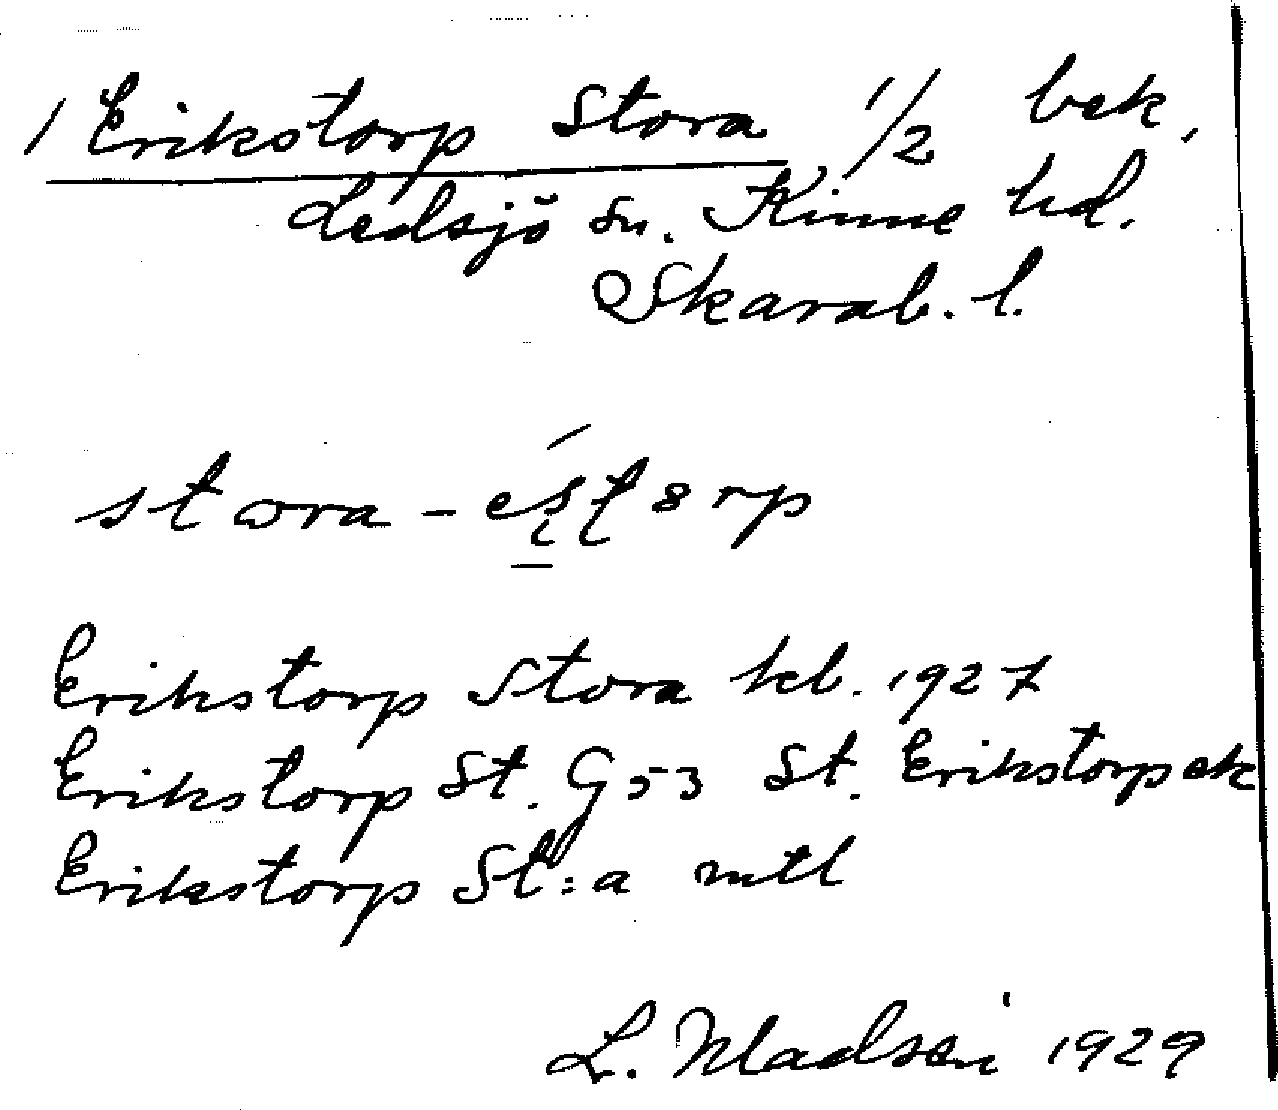 / Erikstorp Stora 1/2 bek.
Ledsjö sn. Kinne hd.
Skarab. l.
stora-
Erikstorp Stora kb. 1927
Erikstorp St. G53 St. Erikstorp ek
Erikstorp St:a mtl
L. Madsen 1929